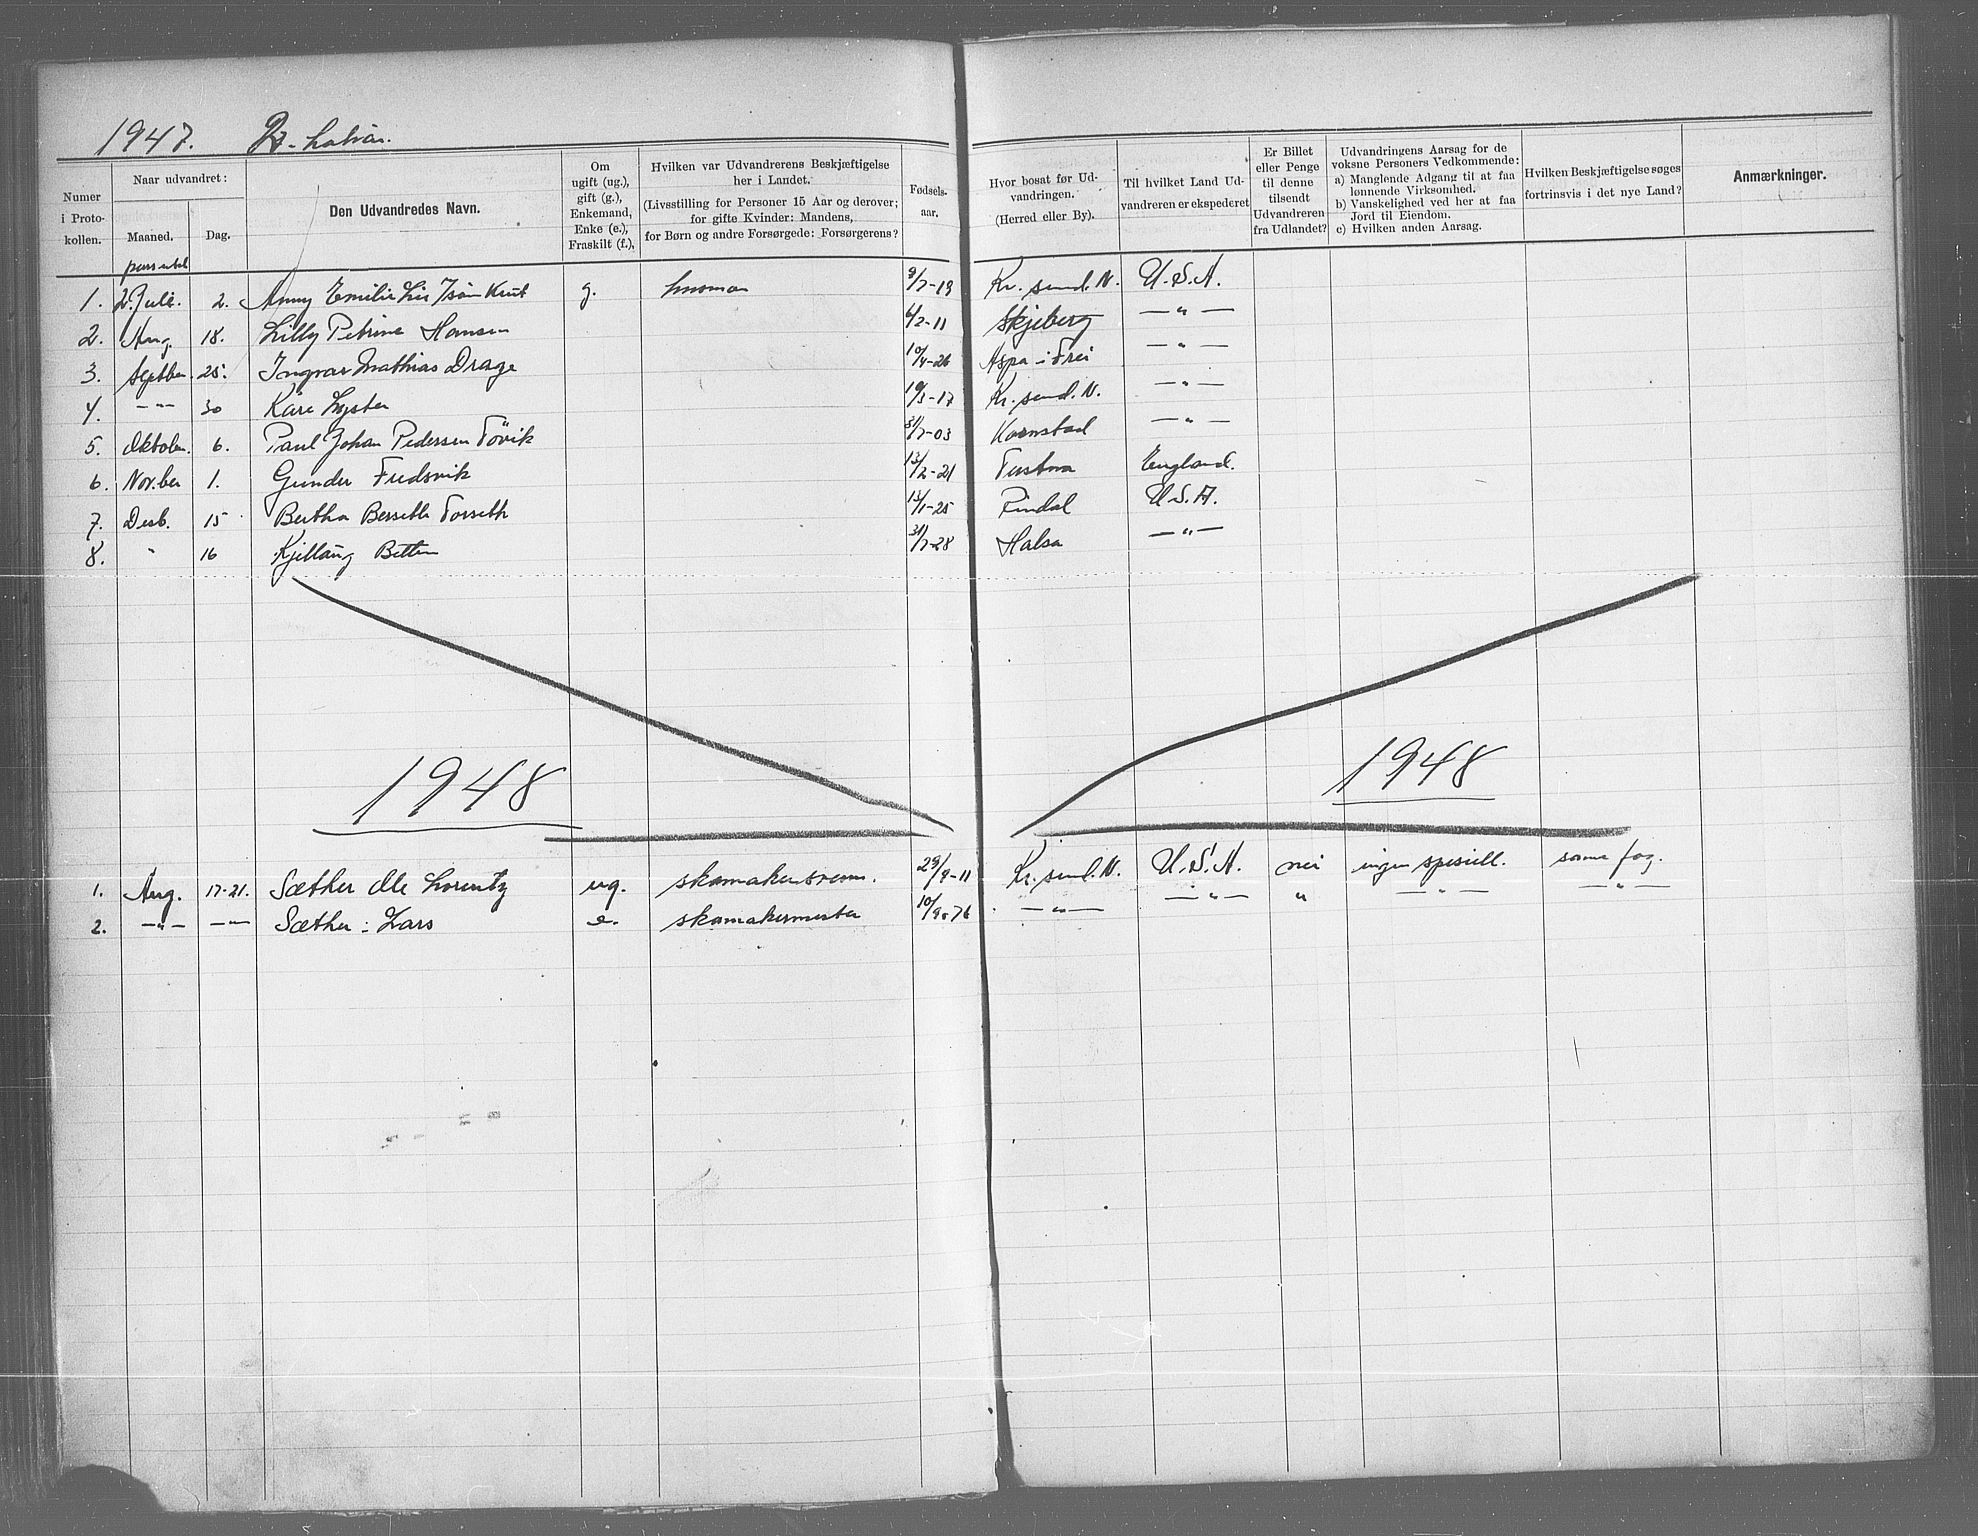 1947. 2-halvår.
Numer i Protokollen.
Naar udvandret:
Maaned.
Dag.
Den Udvandredes Navn.
Om ugift (ug.), gift (g.), Enkemand, Enke (e.), Fraskilt (f.),
Hvilken var Udvandrerens Beskjæftigelse her i Landet.
(Livsstilling for Personer 15 Aar og derover; for gifte Kvinder: Mandens, for Børn og andre Forsørgede: Forsørgerens?
Fødsels-aar.
Hvor bosat før Udvandringen. (Herred eller By).
Til hvilket Land Udvandreren er ekspederet
Er Billet eller Penge til denne tilsendt Udvandreren fra Udlandet?
Udvandringens Aarsag for de voksne Personers Vedkommende:
a) Manglende Adgang til at faa lønnende Virksomhed.
b) Vanskelighed ved her at faa Jord til Eiendom.
c) Hvilken anden Aarsag.
Hvilken Beskjæftigelse søges fortrinsvis i det nye Land?
Anmærkninger.
1. 2. Juli. 2. Anny Emilie g. husmor 9/7-19 Kr.sund.N. U.S.A.
2. Aug. 18. Lilly Petrine Hansen 6/2-11 Skjeberg —"—
3. Septber. 25. Ingvar Mathias Drage 10/4-26 Aspa i Frei —"—
4. —"— 30 Kåre Lyster 17 Kr.sund.N. —"—
5. Oktober. 6. Paul Johan Pedersen Tövik 31/7-03 Kornstad —"—
6. Nov.ber 1. Gunder Fredsvik 13/2-21 Tustna England.
7. Desb. 15 Bertha Torseth 13/1-25 Rindal U.S.A.
8. " 16 Kjellaug Betten 31/7-28 Halsa —"—
1948 1948
1. Aug. 17-21. Sæther Ole Lorentz ug. skomakersvenn. 29/9-11 Kr.sund.N. U.S.A. nei ingen spesiell. samme fag.
2. —"— —"— Sæther: Lars e. skomakermester 10/9-76 —"— —"— " —"— —"—